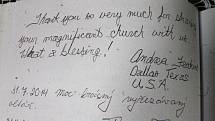 Thank you so very much for sharing
your magnificent church with us
What a blessing!
Andrea
Dallas Texas
U.S.A.
31.7.2014 moc krásný vyřezávaný